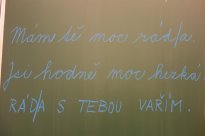 Mám tě moc rád/a.
Jsi hodně moc hezká.
RÁD/A S TEBOU VAŘÍM.